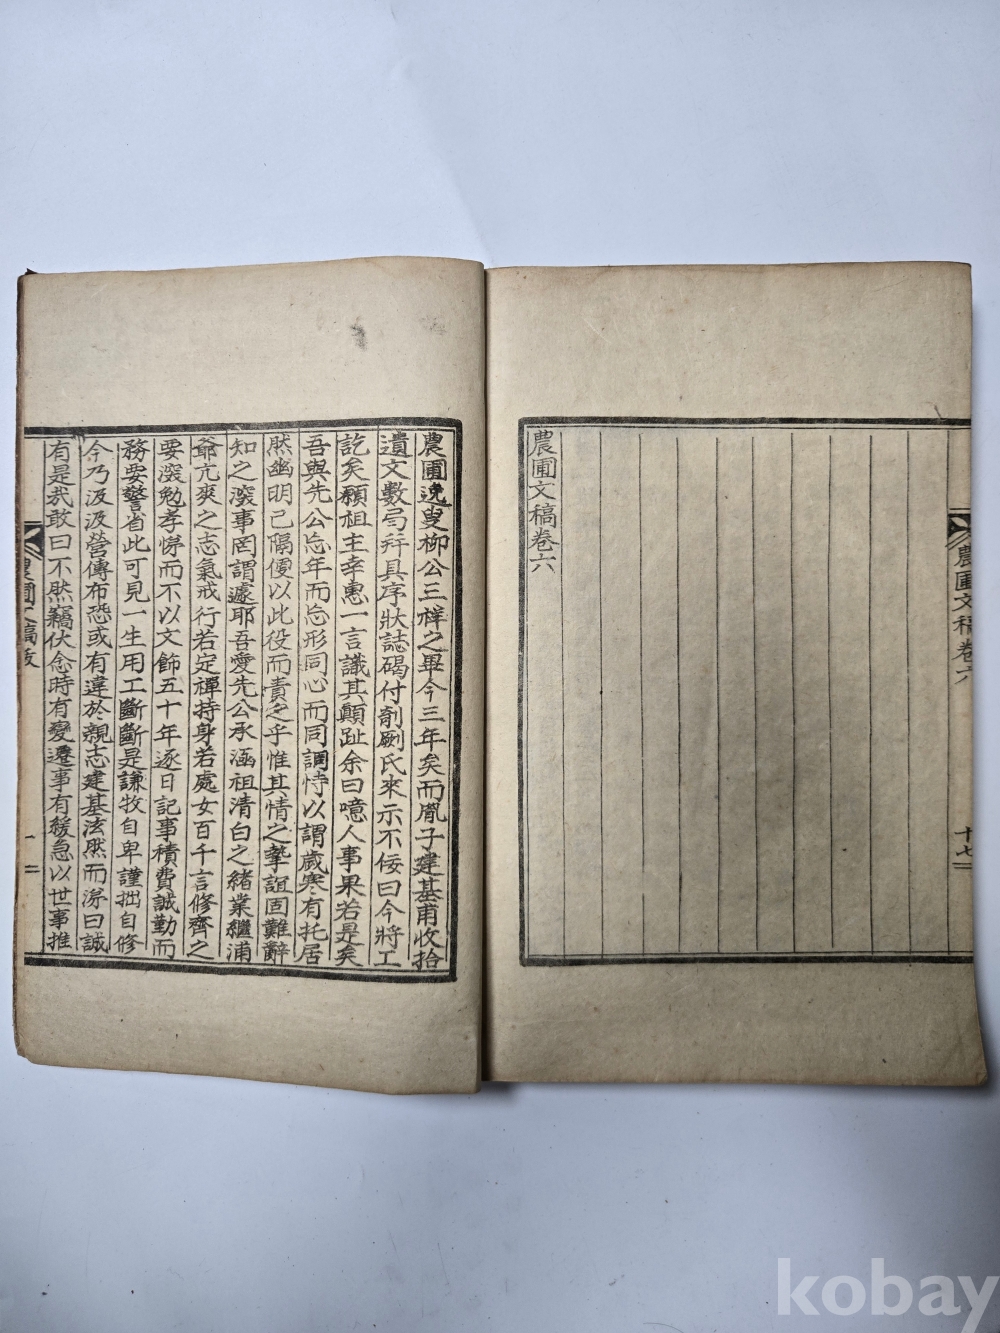 農圃文稿卷六
農圃文稿卷六
十七
農圃逸叟柳公三祥之畢今三年矣而胤子建基甫收拾
遺文數局拜具序狀誌碣付剞劂氏來示不佞曰今將工
訖矣願祖主幸惠一言識其顚趾余曰噫人事果若是矣
吾與先公忘年而忘形同心而同調恃以謂歲寒有托居
然幽明已隔優以此役而責之乎惟其情之摯誼固難辭
知之深事罔謂遽耶吾愛先公承涵祖清白之緖業繼浦
爺亢爽之志氣戒行若定禪持身若處女百千言修齊之
要深勉孝悌而不以文飾五十年逐日記事積費誠勤而
務要警省此可見一生用工斷斷是謙牧自卑謹拙自修
今乃汲汲營傳布恐或有違於親志建基泫然而涕曰誠
有是哉敢曰不然竊伏念時有變遷事有緩急以世事推
農圃文稿跋
一
kobay